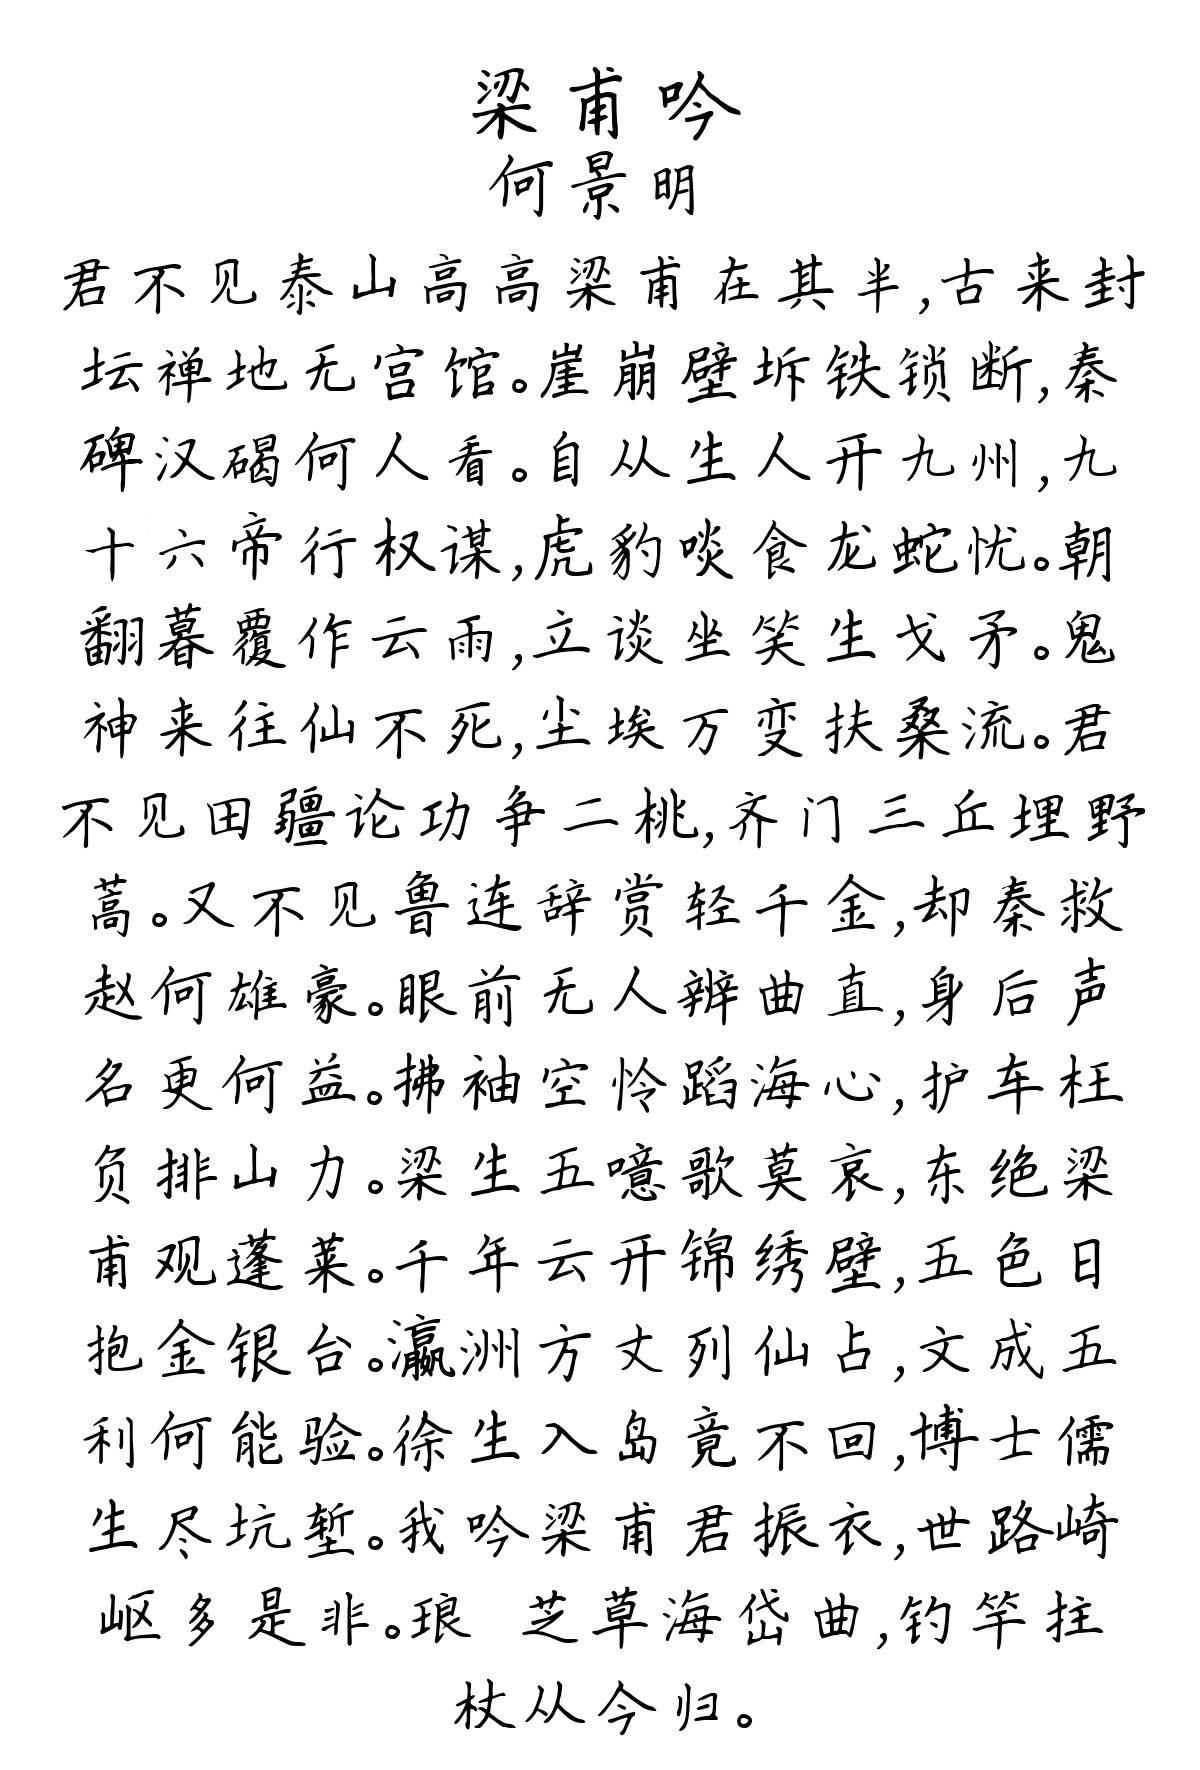 梁甫吟
何景明
君不见泰山高高梁甫在其半,古来封
坛禅地无宫馆。崖崩壁坼铁锁断,秦
碑汉碣何人看。自从生人开九州,九
十六帝行权谋,虎豹啖食龙蛇忧。朝
翻暮覆作云雨,立谈坐笑生戈矛。鬼
神来往仙不死,尘埃万变扶桑流。君
不见田疆论功争二桃,齐门三丘埋野
蒿。又不见鲁连辞赏轻千金,却秦救
赵何雄豪。眼前无人辨曲直,身后声
名更何益。拂袖空怜蹈海心,护车枉
负排山力。梁生五噫歌莫哀,东绝梁
甫观蓬莱。千年云开锦绣壁,五色日
抱金银台。瀛洲方丈列仙占,文成五
利何能验。徐生入岛竟不回,博士儒
生尽坑堑。我吟梁甫君振衣,世路崎
岖多是非。琅 芝草海岱曲,钓竿拄
杖从今归。